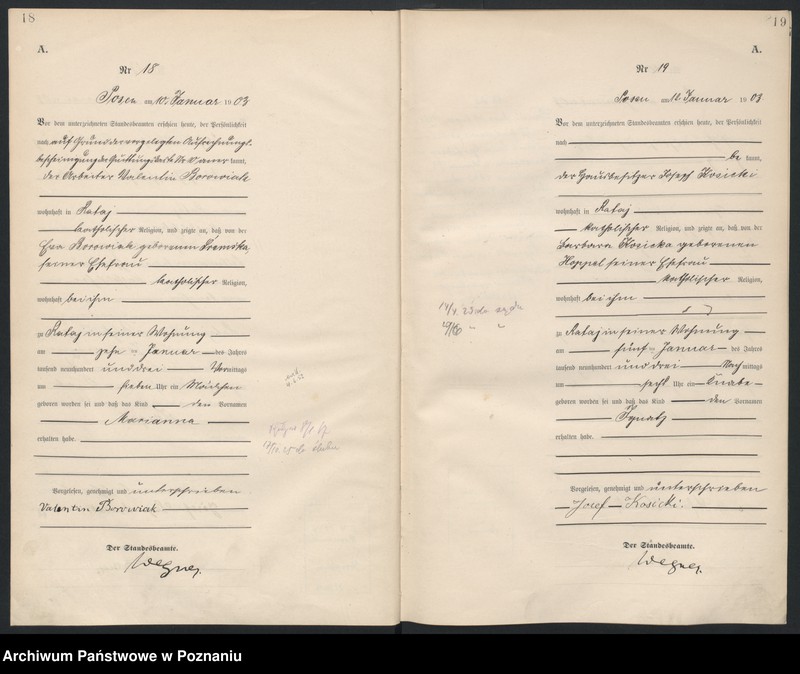 18
A.
Nr 18
Posen am 10. Januar 1903
Vor dem unterzeichneten Standesbeamten erschien heute, der Persönlichkeit
nach auf Grund der vorgelegten Aufrechnungs-
bescheinigung der Quittungskarte Nr. anerkannt,
der Arbeiter Valentin Borowiak
wohnhaft in Rataj
katholischer Religion, und zeigte an, daß von der
Eva Borowiak geborenen
seiner Ehefrau
katholischer Religion,
wohnhaft bei ihm
zu Rataj in seiner Wohnung
am zehn ten Januar des Jahres
tausend neunhundert und drei Vormittags
um sieben Uhr ein Mädchen
geboren worden sei und daß das Kind den Vornamen
Marianna
erhalten habe.
Vorgelesen, genehmigt und unterschrieben
Valentin Borowiak
Der Standesbeamte.
Wegner.
19
A.
Nr 19
Posen am 12. Januar 1903
Vor dem unterzeichneten Standesbeamten erschien heute, der Persönlichkeit
nach
be kannt,
der Hausbesitzer Joseph Kosicki
wohnhaft in Rataj
katholischer Religion, und zeigte an, daß von der
Barbara Kosicka geborenen
Hoppel seiner Ehefrau
katholischer Religion,
wohnhaft bei ihm
zu Rataj in seiner Wohnung
am fünf ten Januar des Jahres
tausend neunhundert und drei Nachmittags
um sechs Uhr ein Knabe
geboren worden sei und daß das Kind den Vornamen
Ignatz
erhalten habe.
Vorgelesen, genehmigt und unterschrieben
Josef Kosicki.
Der Standesbeamte.
Wegner.
Archiwum Państwowe w Poznaniu